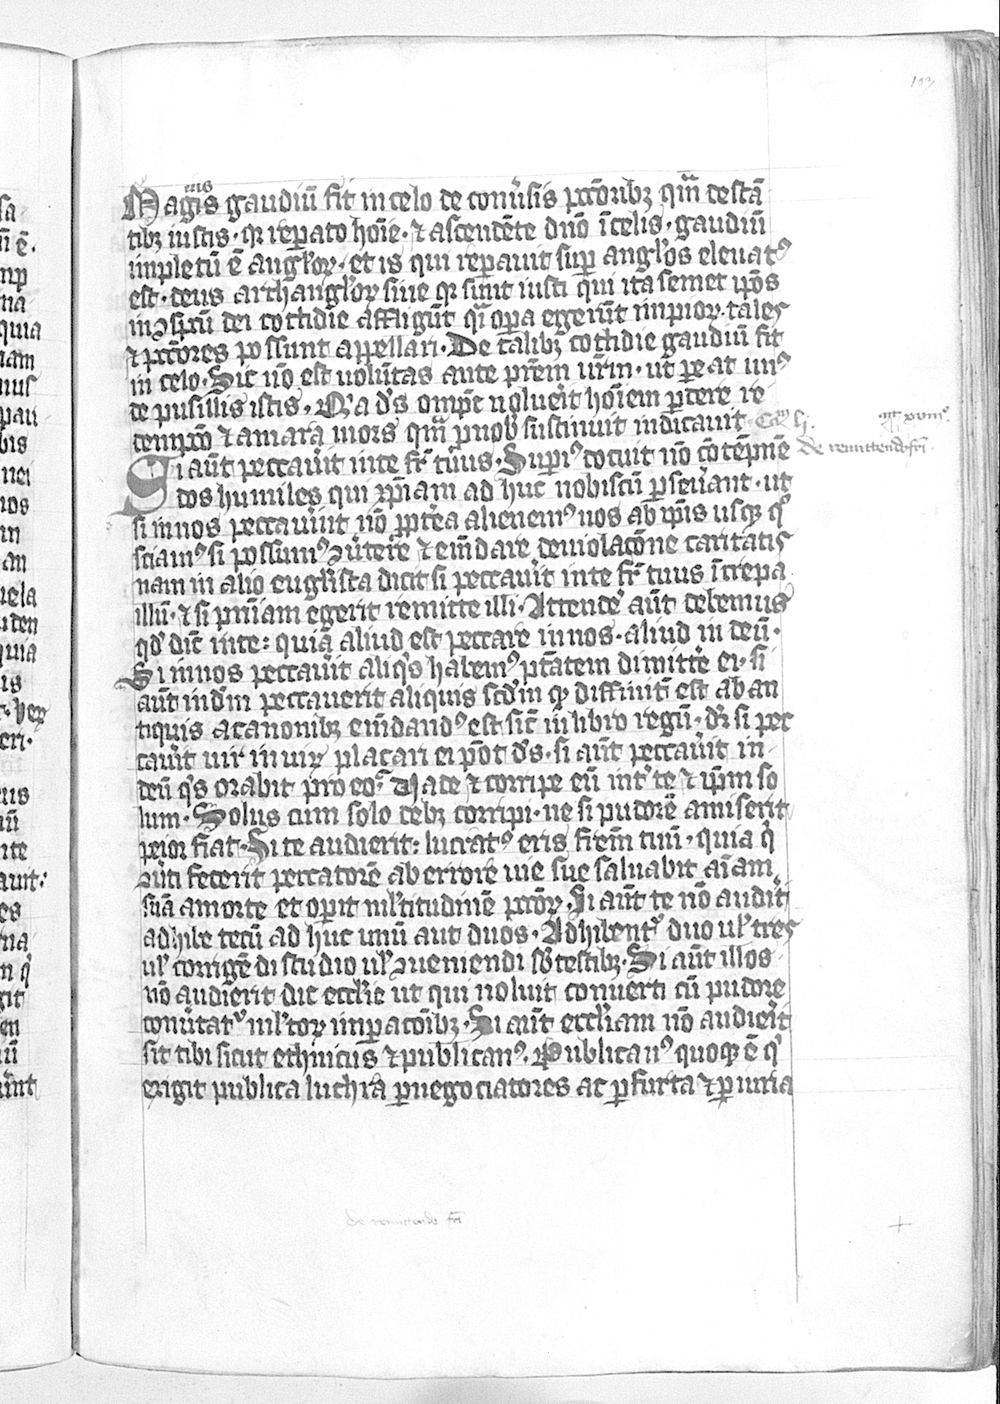 103
Magis gaudiū fit in celo de conũsis pctõribꝫ qm̃ de stã
tibꝫ iustis · qꝛ reꝑato hoīe · ⁊ ascendēte dnõ ī celis · gaudiũ
impletũ ē angl̓oꝝ · et is qui reꝑauit suꝑ angl̓os eleuatꝰ
est · deus archangl̓oꝝ siue qꝛ sunt iusti qui ita semet ip̄os
in ɔspc̄tũ dei cottidie affligũt qͣ̄ oꝑa egerũt impioꝝ · tales
⁊ pctõres possunt appellari · De talibꝫ cottidie gaudiũ fit
in celo · Sic nõ est uolũtas ante pr̄em ur̄m · ut ꝑeat unꝰ
de pusillis istis · Qͥa dꝰs omp̄c noluerit hoīem ꝑdere re
dempcõ ⁊ amara mors qm̃ ꝓ nob̓ sustinuit indicauit · Caꝫ lj.
xviijͦ.
de remittend fr̄i
Si aũt peccau̓it in te fr̄ tuus · Suꝑiꝰ docuit nõ cōtēpnē
dos humiles qui xp̄iam ad huc nobiscũ ꝑseu̓ant · ut
si in nos peccau̓int nõ ꝓpt̓ea alienemꝰ nos ab ip̄is usqꝫ qͦ
sciamꝰ si possumꝰ ɔũtere ⁊ em̄dare de uiolacõne caritatis
nam in alio eugl̓ista dicit si peccau̓it in te fr̄ tuus īcrepa
illũ · ⁊ si pnĩam egerit remitte illi · Attende̓ aũt debemus
qd̓ dic̄ in te : quia aliud est peccare in nos · aliud in deũ ·
Si in nos peccau̓it aliqͥs habemꝰ ptãtem dimitte̓ ei · si
aũt in dm̄ peccauerit aliquis scd̓m qꝫ diffinitũ est ab an
tiquis a canonibꝫ em̄dandꝰ est sic̄ in libro regũ · dr̄ si pec
cau̓it uir in uiꝝ placari ei põt dꝰs · si aũt peccau̓it in
deũ qͥs orabit pro eo · Uade ⁊ corripe eũ int̓ te ⁊ ip̄m so
lum · Solus cum solo debꝫ corripi · ne si pudorē amiserit
peior fiat · Si te audierit : lucratꝰ eris fr̄em tuũ · quia qͥ
ɔũti fecerit peccatorē ab errore uie sue saluabit aīam
suã a morte et oꝑit ml̓titudinē pctõꝝ · Si aũt te nõ audiĩt
adhibe tecũ ad huc unũ aut duos · Adhibentͬ duo ul̓ tres
ul̓ corrigēdi studio ul̓ ɔueniendi sb̓ testibꝫ · Si aũt illos
nõ audierit dic eccl̓ie ut qui noluit conuerti cũ pudore
conũtatͬ ml̓toꝝ impacõibꝫ · Si aũt eccl̓iam nõ audierit
sit tibi sicut ethnicus ⁊ publicanꝰ. Publicanꝰ quoqꝫ ē qͥ
erigit publica luchra ꝑ negociatores ac ꝑ furta ⁊ ꝑiuria
de remittendo fr̄i